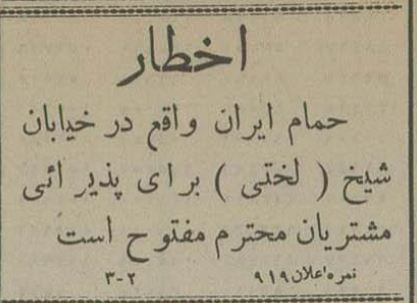 اخطار
حمام ایران واقع در خیابان
شیخ ( لختی ) برای پذیرائی
مشتریان محترم مفتوح است
نمره اعلان ۹۱۹ ۲-۳